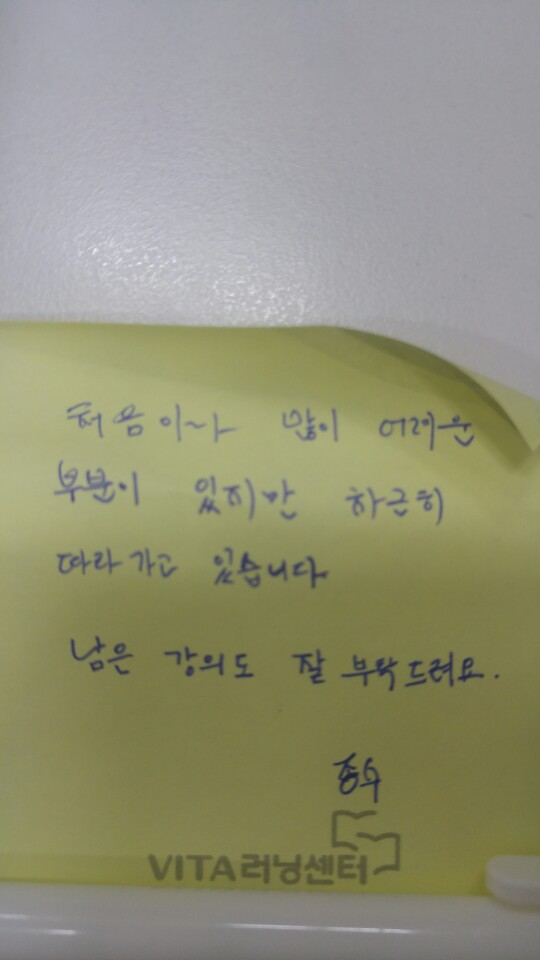 처음이나 많이 어려운
부분이 있지만 차근히
따라가고 있습니다
남은 강의도 잘 부탁드려요.
VITA러닝센터